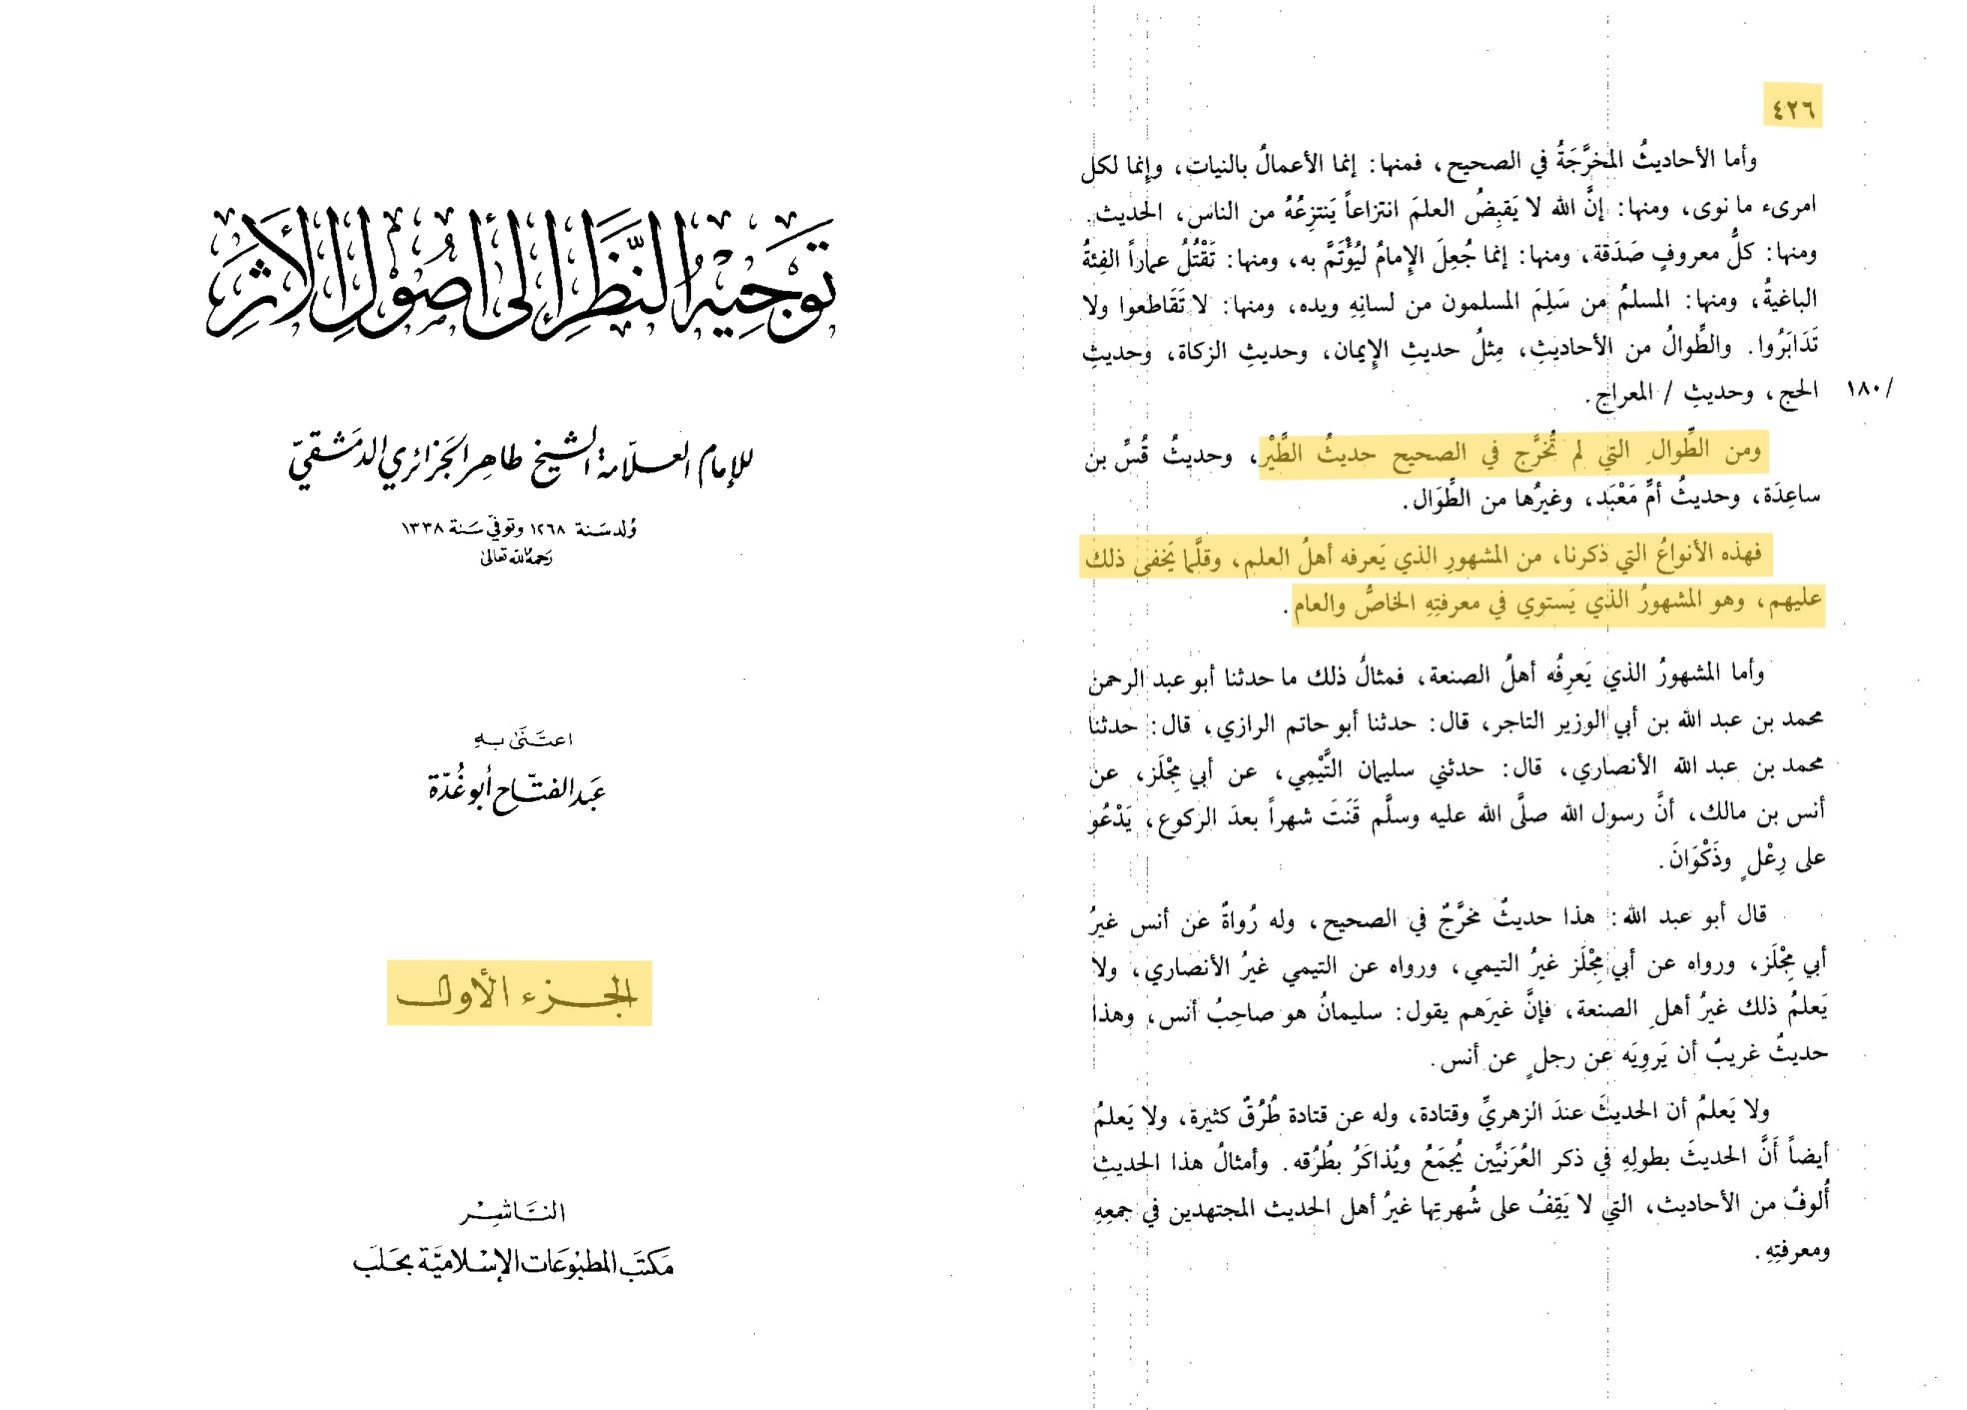 تَوجِيهُ النَّظَرِ إلى أُصُولِ الأَثَرِ
للإمام العلّامة الشيخ طاهر الجَزائري الدمَشقيّ
وُلد سَنة ١٢٦٨ وتوفيّ سَنة ١٣٣٨
رَحمهُ الله تعالى
اعتَنَى بهِ
عَبد الفتّاح أبو غُدّة
الجزء الأول
النَّاشِر
مَكتَب المطبُوعَات الإسْلاميَّة بحَلَب
٤٢٦
وأما الأحاديثُ المخرَّجَةُ في الصحيح، فمنها: إنما الأعمالُ بالنيات، وإنما لكل
امرىء ما نوى، ومنها: إنَّ الله لا يَقبِضُ العلمَ انتزاعاً يَنتزِعُهُ من الناس، الحديث.
ومنها: كلُّ معروفٍ صَدَقة، ومنها: إنما جُعِلَ الإمامُ ليُؤْتَمَّ به، ومنها: تَقْتُلُ عماراً الفِئةُ
الباغيةُ، ومنها: المسلمُ من سَلِمَ المسلمون من لسانِهِ ويده، ومنها: لا تَقَاطعوا ولا
تَدَابَرُوا. والطِّوالُ من الأحاديثِ، مِثلُ حديثِ الإيمان، وحديثِ الزكاة، وحديثِ
الحج، وحديثِ / المعراج.
/١٨٠
ومن الطِّوالِ التي لم تُخرَّج في الصحيح حديثُ الطَّيْر، وحديثُ قُسِّ بن
ساعِدَة، وحديثُ أمِّ مَعْبَد، وغيرُها من الطِّوَال.
فهذه الأنواعُ التي ذكرنا، من المشهورِ الذي يَعرفه أهلُ العلم، وقلَّما يَخفى ذلك
عليهم، وهو المشهورُ الذي يَستوي في معرفتِهِ الخاصُّ والعام.
وأما المشهورُ الذي يَعرِفُه أهلُ الصنعة، فمثالُ ذلك ما حدثنا أبو عبد الرحمن
محمد بن عبد الله بن أبي الوزير التاجر، قال: حدثنا أبو حاتم الرازي، قال: حدثنا
محمد بن عبد الله الأنصاري، قال: حدثني سليمان التَّيْمِي، عن أبي مِجْلَز، عن
أنس بن مالك، أنَّ رسول الله صلَّى الله عليه وسلَّم قَنَتَ شهراً بعدَ الركوع، يَدْعُو
على رِعْلٍ وذَكْوَانَ.
قال أبو عبد الله: هذا حديثٌ مخرَّجٌ في الصحيح، وله رُواةٌ عن أنس غيرُ
أبي مِجْلَز، ورواه عن أبي مِجْلَز غيرُ التيمي، ورواه عن التيمي غيرُ الأنصاري، ولا
يَعلمُ ذلك غيرُ أهلِ الصنعة، فإنَّ غيرَهم يقول: سليمانُ هو صاحِبُ أنس، وهذا
حديثٌ غريبٌ أن يَروِيَه عن رجلٍ عن أنس.
ولا يَعلمُ أن الحديثَ عندَ الزهريِّ وقتادة، وله عن قتادة طُرُقٌ كثيرة، ولا يَعلمُ
أيضاً أَنَّ الحديثَ بطولِهِ في ذكر العُرَنيِّين يُجمَعُ ويُذاكَرُ بطُرُقه. وأمثالُ هذا الحديثِ
أُلوفٌ من الأحاديث، التي لا يَقِفُ على شُهرتِها غيرُ أهل الحديث المجتهدين في جمعِهِ
ومعرفتِهِ.